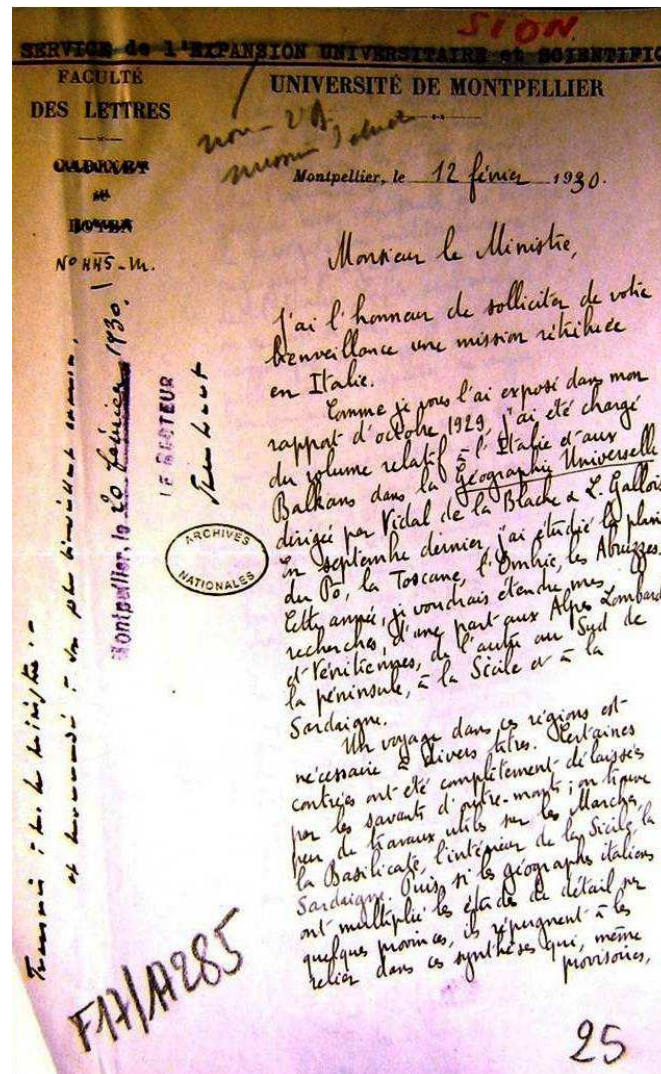 SION
SERVICE de l'EXPANSION UNIVERSITAIRE et SCIENTIFIQ
FACULTÉ
DES LETTRES
UNIVERSITÉ DE MONTPELLIER
CABINET
DU
DOYEN
Montpellier, le 12 février 1930.
Monsieur le Ministre,
J'ai l'honneur de solliciter de votre
bienveillance une mission rétribuée
en Italie.
Comme je vous l'ai exposé dans mon
rapport d'octobre 1929, j'ai été chargé
du volume relatif à l'Italie et aux
Balkans dans la Géographie Universelle
dirigée par Vidal de la Blache & L. Gallois
En septembre dernier, j'ai étudié la plaine
du Pô, la Toscane, l'Ombrie, les Abruzzes.
Cette année, je voudrais étendre mes
recherches, d'une part aux Alpes Lombard
et Vénitiennes, de l'autre au Sud de
la péninsule, à la Sicile et à la
Sardaigne.
Un voyage dans ces régions est
nécessaire à divers titres. Certaines
contrées ont été complètement délaissées
par les savants d'outre-monts ; on trouve
peu de travaux utiles sur les Marches,
la Basilicate, l'intérieur de la Sicile, la
Sardaigne. Puis, si les géographes italiens
ont multiplié les études de détail sur
quelques provinces, ils répugnent à les
relier dans ces synthèses qui, même
provisoires,
Montpellier, le 20 février 1930.
LE RECTEUR
ARCHIVES
NATIONALES
F17/17285
25